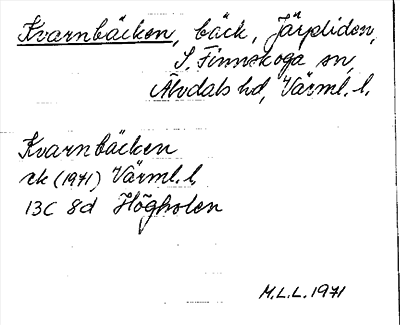 Kvarnbäcken, bäck, Järpliden,
S. Finnskoga sn,
Älvdals hd, Värml. l.
Kvarnbäcken
rk (1971) Värml. l.
13C 8d Högholen
M.L.L. 1971